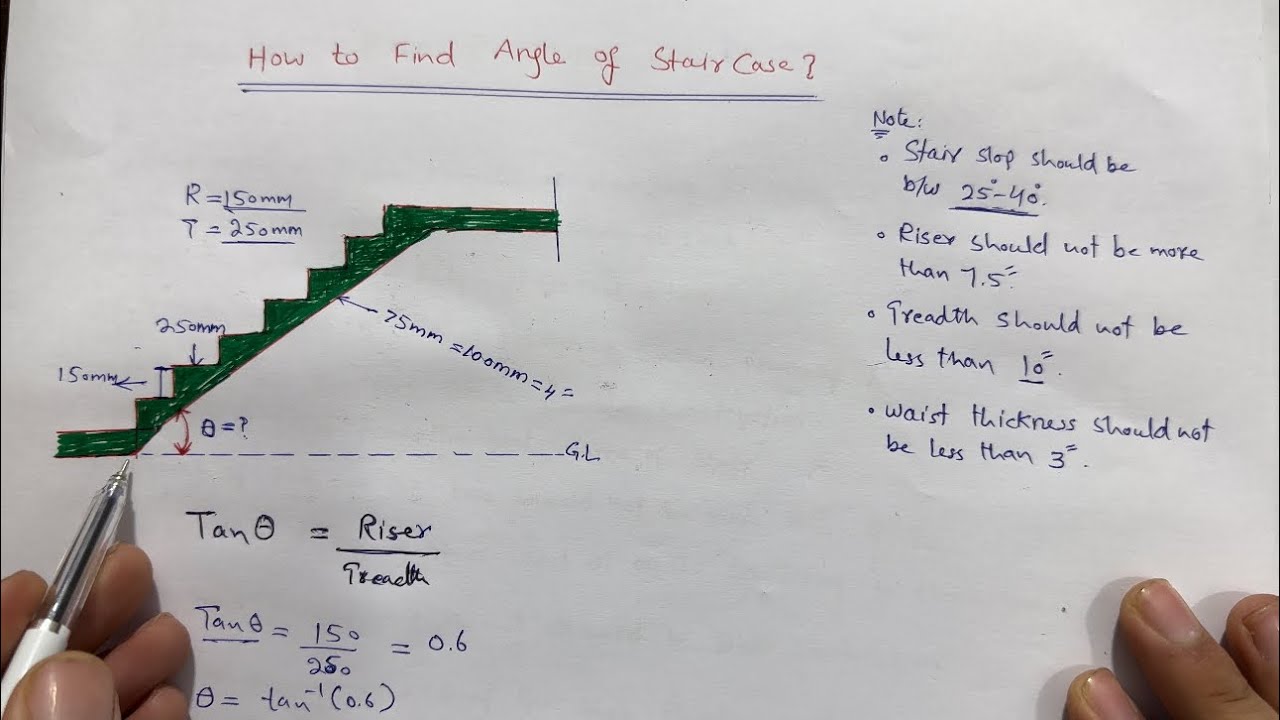 How to Find Angle of StairCase?
R = 150mm
T = 250mm
250mm
150mm
75mm = 100mm = 4=
θ = ?
G.L
Tanθ = Riser
Treadth
Tanθ = 150 = 0.6
250
θ = tan⁻¹(0.6)
Note:
• Stair slop should be
b/w 25°-40°.
• Riser should not be more
than 7.5=.
• Treadth should not be
less than 10=.
• waist thickness should not
be less than 3=.